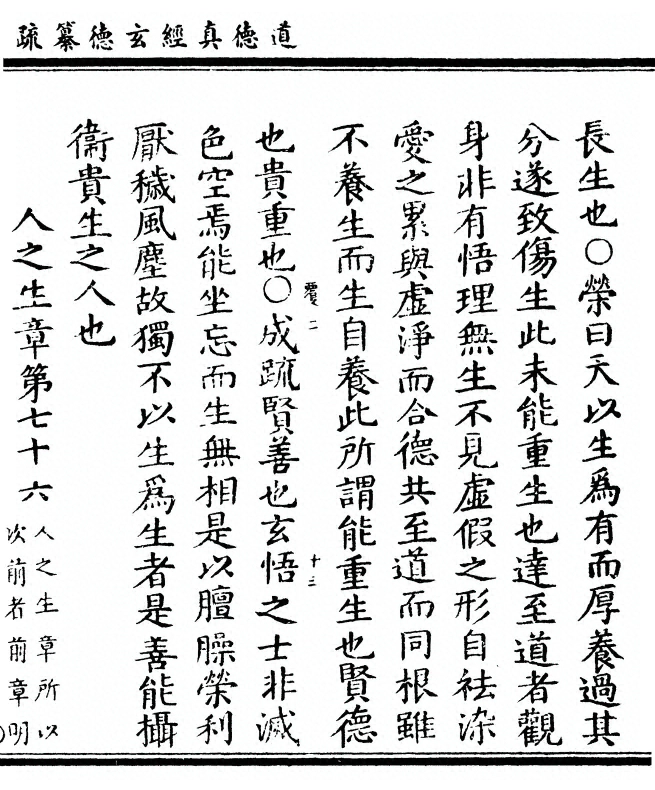 道德真經玄德纂疏
長生也〇榮曰天以生爲有而厚養過其
分遂致傷生此未能重生也達至道者觀
身非有悟理無生不見虛假之形自祛染
愛之累與虛淨而合德共至道而同根雖
不養生而生自養此所謂能重生也賢德
也貴重也〇成疏賢善也玄悟之士非滅
色空焉能坐忘而生無相是以膻臊榮利
厭穢風塵故獨不以生爲生者是善能攝
衞貴生之人也
人之生章第七十六
人之生章所以
次前者前章明
二
十三